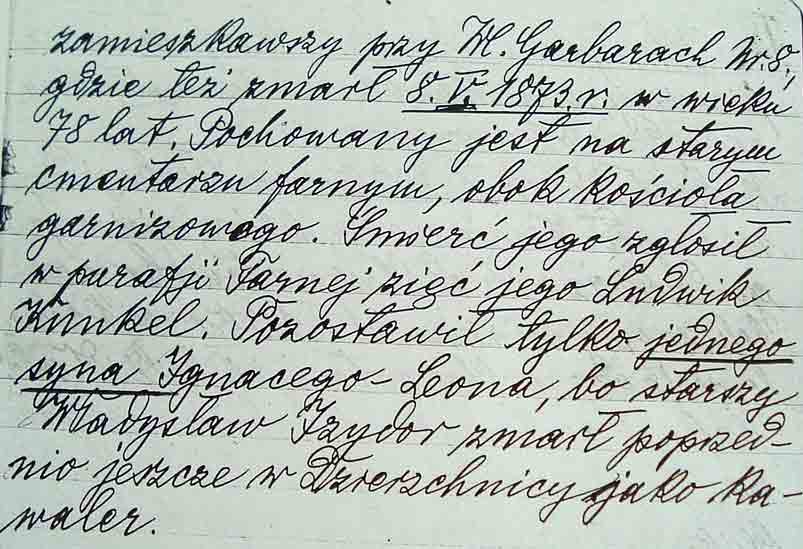 zamieszkawszy przy W. Garbarach Nr. 8.,
gdzie też zmarł 8. V. 1873. r. w wieku
78 lat. Pochowany jest na starym
cmentarzu farnym, obok kościoła
garnizowego. Śmierć jego zgłosił
w parafji Farnej zięć jego Ludwik
Kunkel. Pozostawił tylko jednego
syna Ignacego - Leona, bo starszy
Władysław Izydor zmarł poprzed-
nio jeszcze w Dzierzchnicy jako ka-
waler.